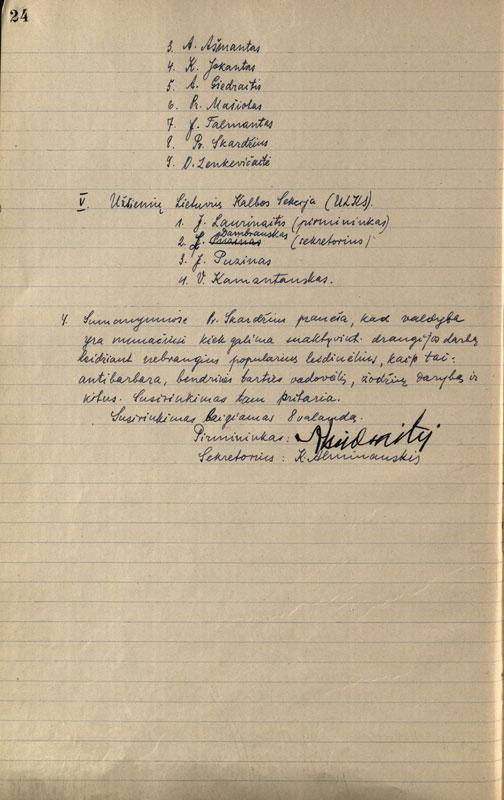 24
3. A. Ašmantas
4. K. Jokantas
5. A. Giedraitis
6. Pr. Mašiotas
7. J. Talmantas
8. Pr. Skardžius
9. O. Lenkevičaitė
V. Užsienių Lietuvių Kalbos Sekcija (ULKS).
1. J. Laurinaitis (pirmininkas)
Dambrauskas
2. J. (sekretorius)
3. J. Puzinas
4. V. Kamantauskas.
4. Sumanymuose Pr. Skardžius praneša, kad valdyba
yra numačiusi kiek galima suaktyvinti draugijos darbą
leidžiant nebrangius populiarius leidinėlius, kaip tai:
antibarbarą, bendrinės tarties vadovėlį, žodžių darybą ir
kitus. Susirinkimas tam pritaria.
Susirinkimas baigiamas 8 valandą.
Pirmininkas:
Sekretorius: K. Alminauskis